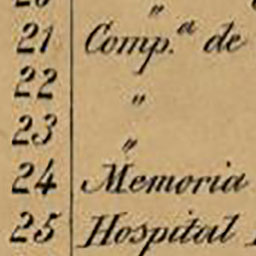 "
21 Comp.ª de
22 "
23 "
24 Memoria
25 Hospital